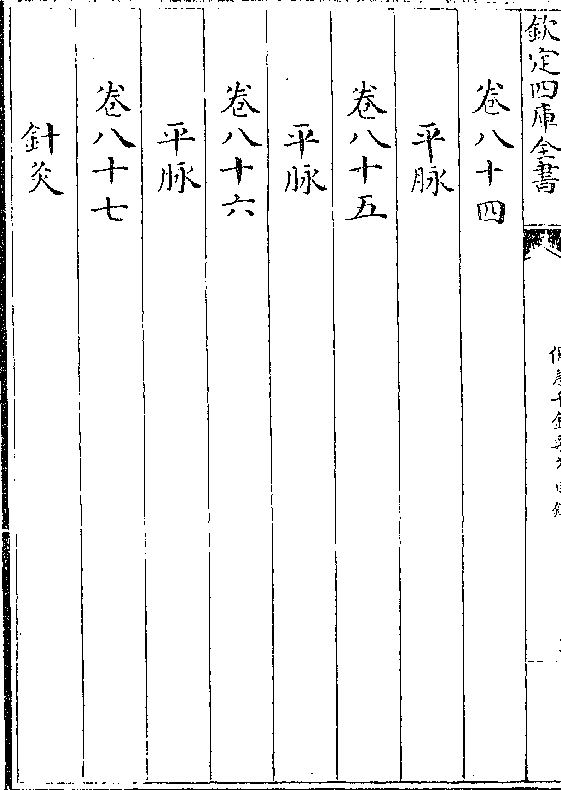 欽定四庫全書
備急千金要方目錄
卷八十四
平脉
卷八十五
平脉
卷八十六
平脉
卷八十七
針灸